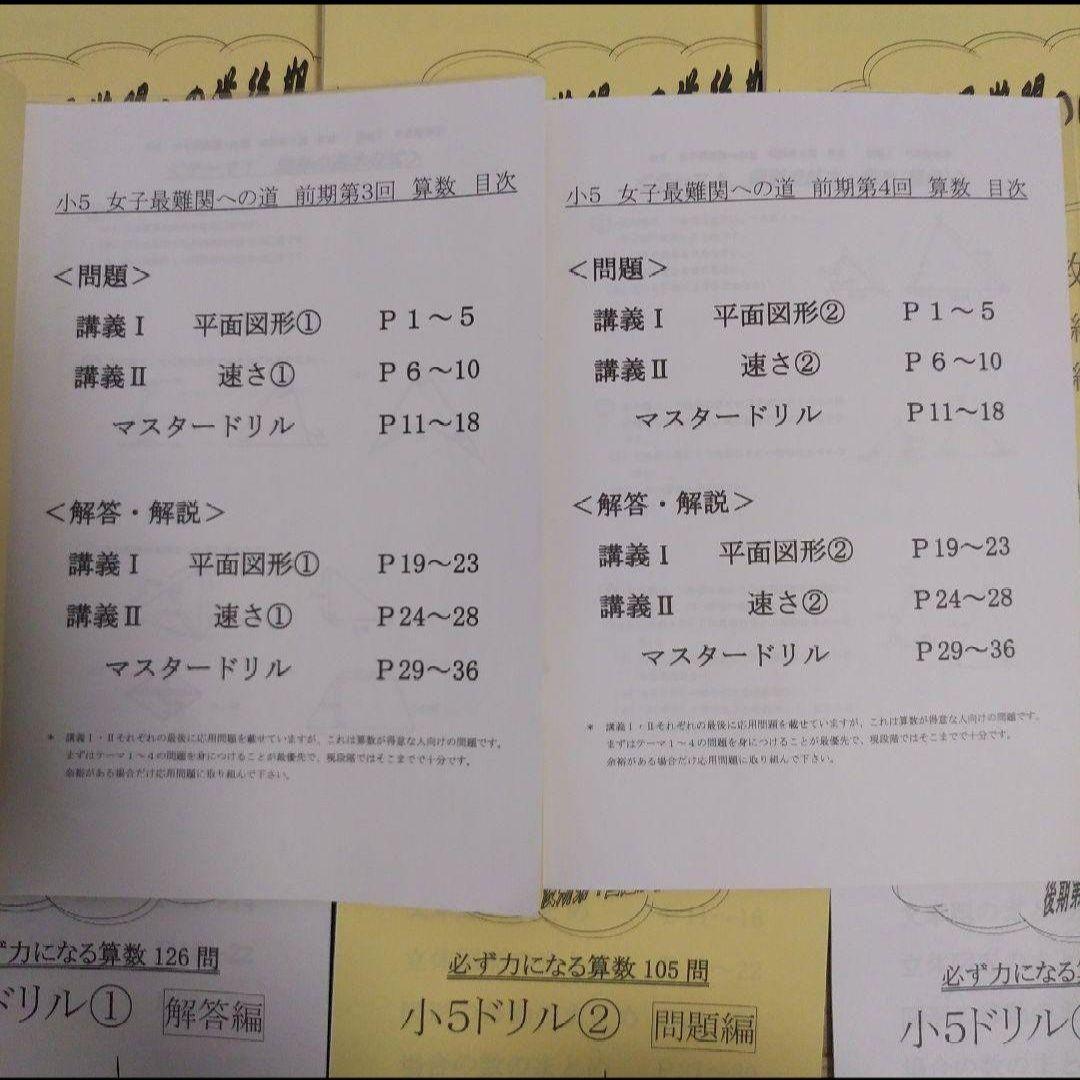 小5 女子最難関への道 前期第3回 算数 目次
＜問題＞
講義Ⅰ 平面図形① P１～５
講義Ⅱ 速さ① P６～10
マスタードリル P11～18
＜解答・解説＞
講義Ⅰ 平面図形① P19～23
講義Ⅱ 速さ① P24～28
マスタードリル P29～36
* 講義Ⅰ・Ⅱそれぞれの最後に応用問題を載せていますが、これは算数が得意な人向けの問題です。
まずはテーマ１～４の問題を身につけることが最優先で、現段階ではそこまでで十分です。
余裕がある場合だけ応用問題に取り組んで下さい。
小5 女子最難関への道 前期第4回 算数 目次
＜問題＞
講義Ⅰ 平面図形② P１～５
講義Ⅱ 速さ② P６～10
マスタードリル P11～18
＜解答・解説＞
講義Ⅰ 平面図形② P19～23
講義Ⅱ 速さ② P24～28
マスタードリル P29～36
* 講義Ⅰ・Ⅱそれぞれの最後に応用問題を載せていますが、これは算数が得意な人向けの問題です。
まずはテーマ１～４の問題を身につけることが最優先で、現段階ではそこまでで十分です。
余裕がある場合だけ応用問題に取り組んで下さい。
ず力になる算数 126 問
ドリル① 解答編
必ず力になる算数 105 問
小5ドリル② 問題編
後期第
必ず力になる算
小5ドリル